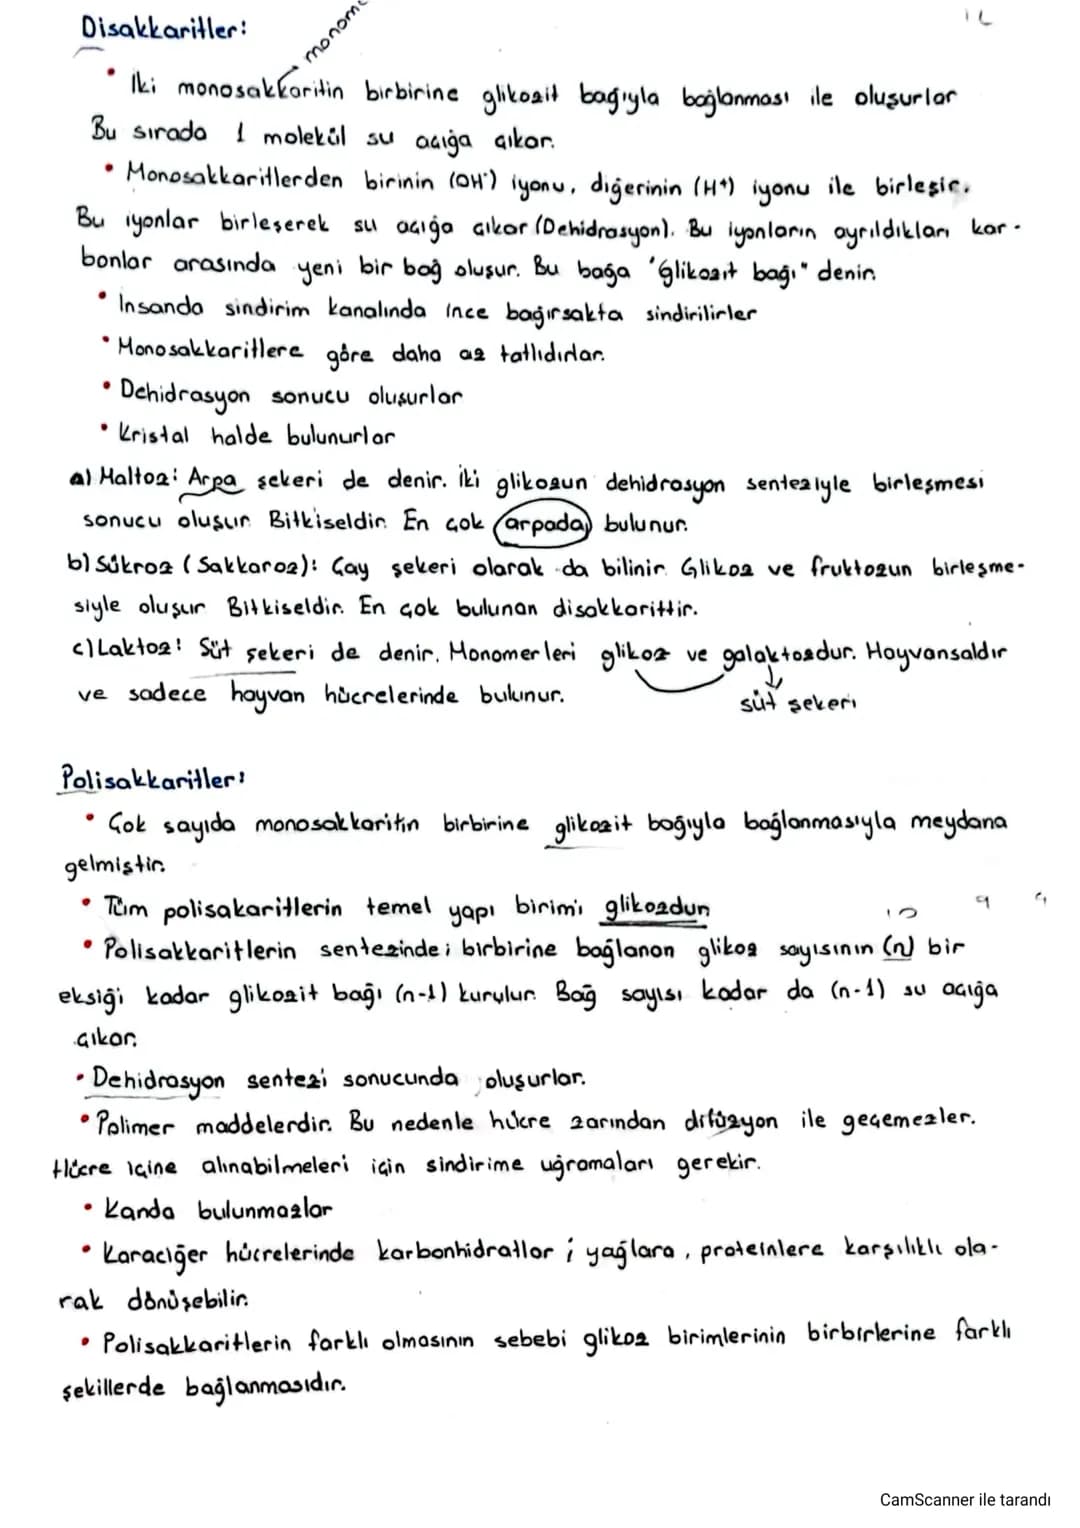 Disakkaritler:
monome
• İki monosakkaritin birbirine glikozit bağıyla bağlanması ile oluşurlar
Bu sırada 1 molekül su açığa çıkar.
• Monosakkaritlerden birinin (OH⁻) iyonu, diğerinin (H⁺) iyonu ile birleşir.
Bu iyonlar birleşerek su açığa çıkar (Dehidrasyon). Bu iyonların ayrıldıkları kar-
bonlar arasında yeni bir bağ oluşur. Bu bağa "Glikozit bağı" denir.
• İnsanda sindirim kanalında ince bağırsakta sindirilirler
• Monosakkaritlere göre daha az tatlıdırlar.
• Dehidrasyon sonucu oluşurlar
• Kristal halde bulunurlar
a) Maltoz: Arpa şekeri de denir. İki glikozun dehidrasyon senteziyle birleşmesi
sonucu oluşur. Bitkiseldir. En çok arpada bulunur.
b) Sükroz (Sakkaroz): Çay şekeri olarak da bilinir. Glikoz ve fruktozun birleşme-
siyle oluşur Bitkiseldir. En çok bulunan disakkarittir.
c) Laktoz: Süt şekeri de denir. Monomerleri glikoz ve galaktozdur. Hayvansaldır
ve sadece hayvan hücrelerinde bulunur.
süt şekeri
Polisakkaritler:
• Çok sayıda monosakkaritin birbirine glikozit bağıyla bağlanmasıyla meydana
gelmiştir.
• Tüm polisakaritlerin temel yapı birimi glikozdur
• Polisakkaritlerin sentezinde; birbirine bağlanan glikoz sayısının (n) bir
eksiği kadar glikozit bağı (n-1) kurulur. Bağ sayısı kadar da (n-1) su açığa
çıkar.
• Dehidrasyon sentezi sonucunda oluşurlar.
• Polimer maddelerdir. Bu nedenle hücre zarından difüzyon ile geçemezler.
Hücre içine alınabilmeleri için sindirime uğramaları gerekir.
• Kanda bulunmazlar
• Karaciğer hücrelerinde karbonhidratlar; yağlara, proteinlere karşılıklı ola-
rak dönüşebilir.
• Polisakkaritlerin farklı olmasının sebebi glikoz birimlerinin birbirlerine farklı
şekillerde bağlanmasıdır.
CamScanner ile tarandı